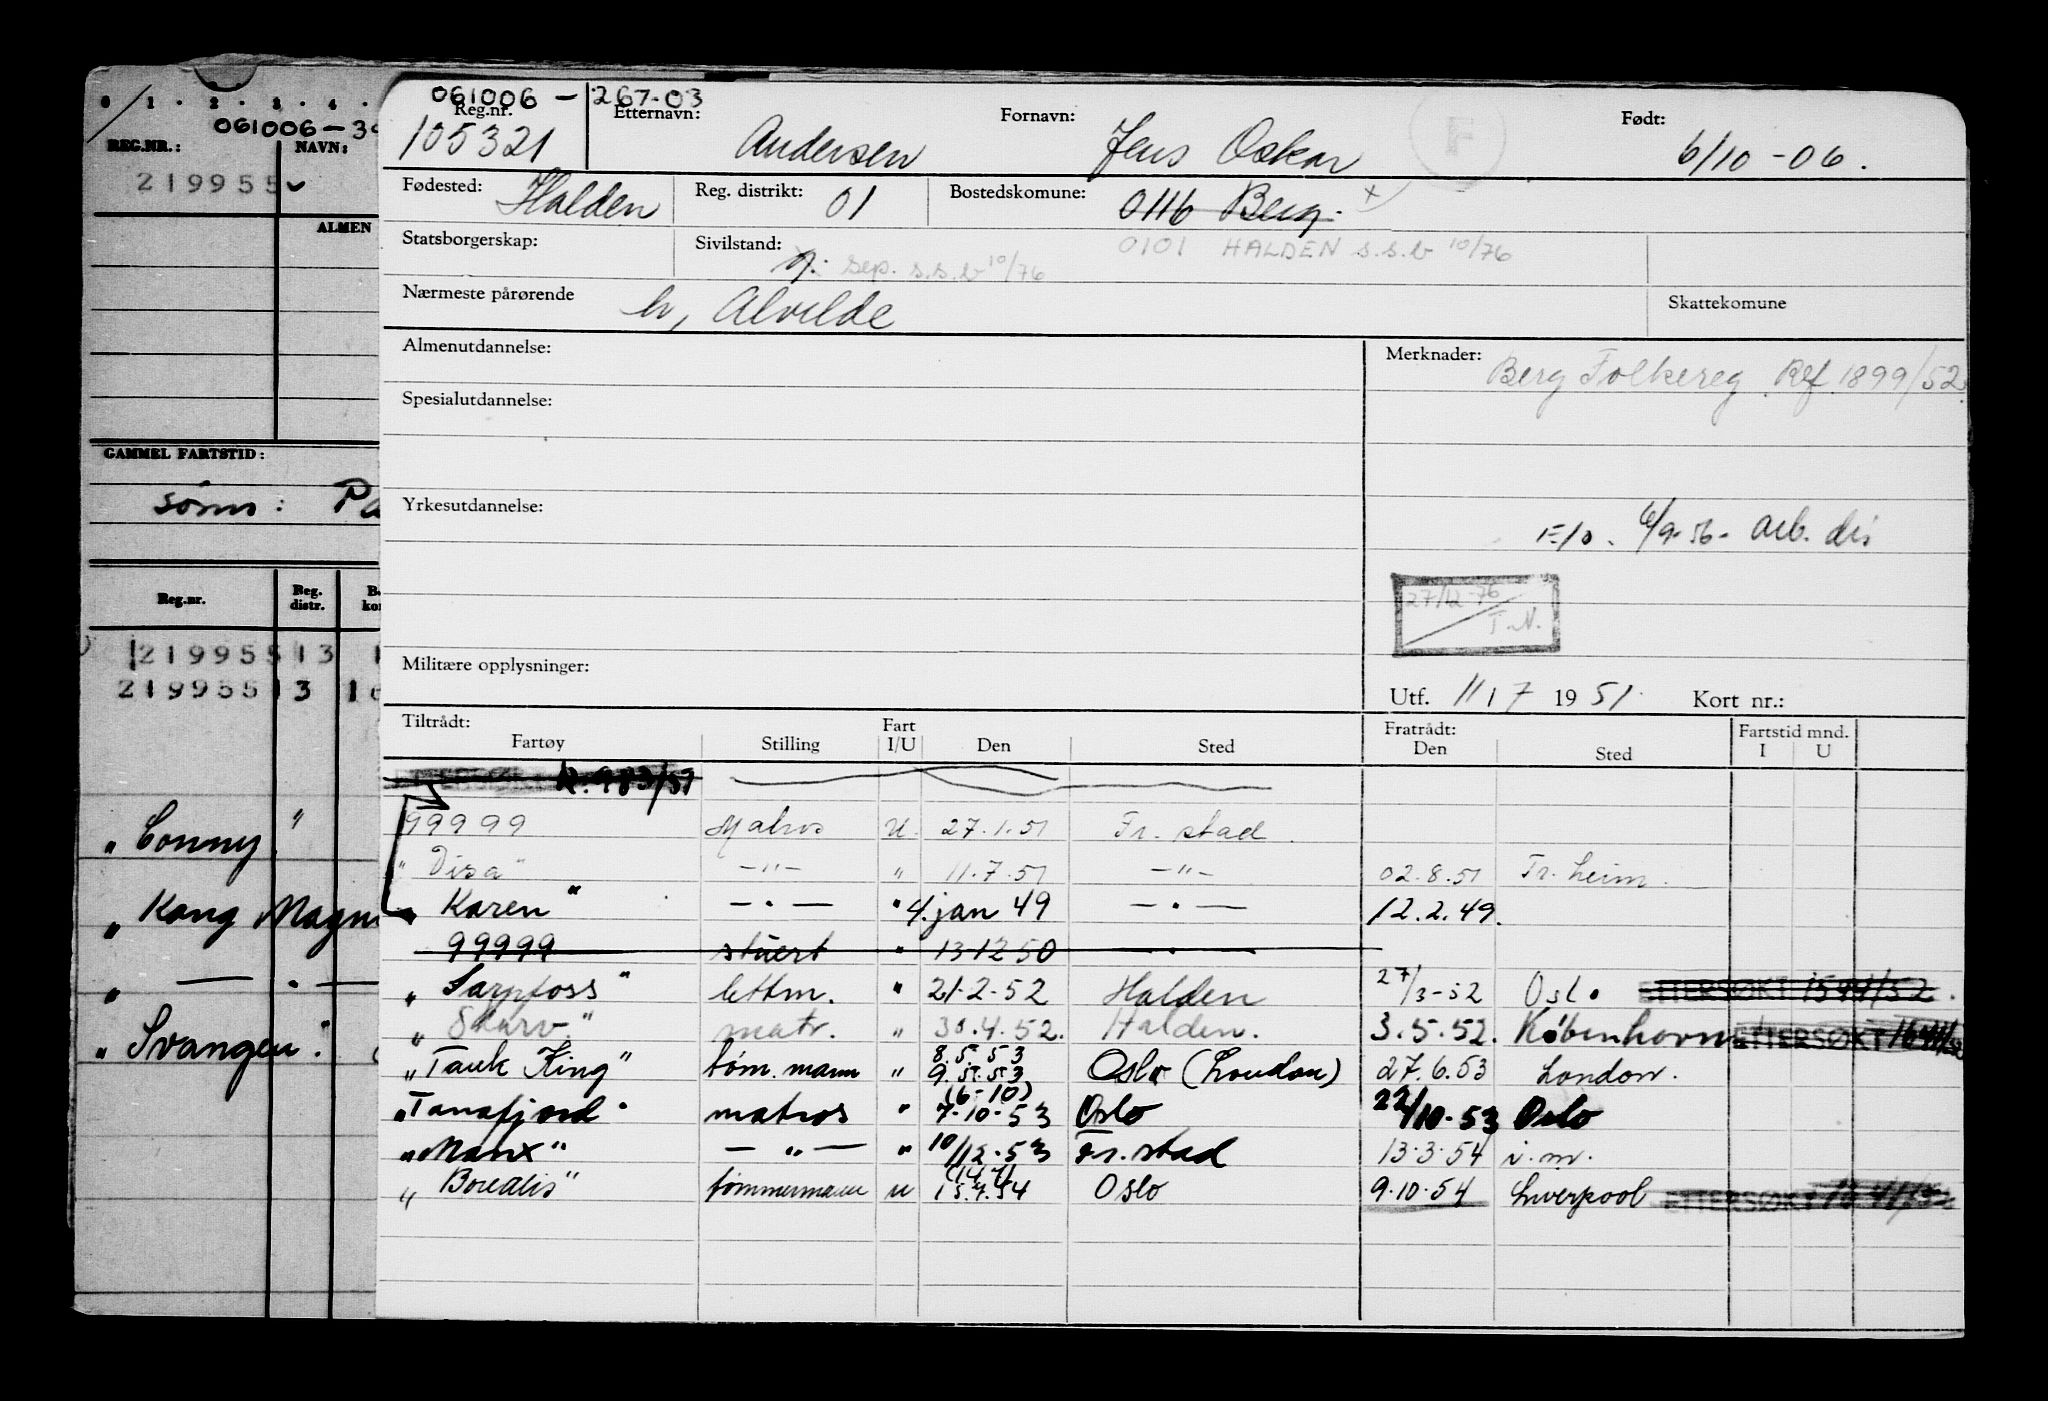 0 1 . 2 . 3 . 4 .
061006-3
REG.NR.: NAVN:
219955
ALMEN
GAMMEL FARTSTID:
sønn: Pa
Reg.nr. Reg. distr.
219955 13 1
219955 13 1
" Conny "
" Kong Magn
" — " —
" Svangen "
061006 - 267-03
Reg.nr. Etternavn: Fornavn: Født:
105321 Andersen Jens Oskar F 6/10-06.
Fødested: Halden Reg. distrikt: 01 Bostedskomune: 0116 Berg. x
Statsborgerskap: Sivilstand: g. sep. s.s.b 10/76 0101 HALDEN s.s.b 10/76
Nærmeste pårørende h, Alvilde Skattekomune
Almenutdannelse: Merknader: Berg Folkereg Rf. 1899/52
Spesialutdannelse:
Yrkesutdannelse:
F/o. 6/9-56- arb. dir
27/12-76
T.N.
Militære opplysninger:
Utf. 11/7 1951. Kort nr.:
Tiltrådt: Fart Fratrådt: Fartstid mnd.
Fartøy Stilling I/U Den Sted Den Sted I U
R. 983/51
99999 Matros U. 27.1.51 Fr. stad
" Disa " — " — " 11.7.51 — " — 02.8.51 Tr. heim.
" Karen " — " — " 4. jan 49 — " — 12.2.49.
99999 stuert " 13-12 50 — " —
" Sarpfoss " lettm. " 21-2-52 Halden 27/3-52 Oslo ETTERSØKT 1594/52.
" Skarv " matr. " 30.4.52. Halden. 3.5.52. København ETTERSØKT
" Tank King " tøm. mann " 8.5.53 9.5.53 Oslo (London) 27.6.53 London.
" Tanafjord " matros " (6-10) 7-10-53 Oslo 22/10-53 Oslo
" Manx " — " — " 10/12-53 Fr. stad 13.3.54 i.m.
" Borealis " tømmermann u (14.7) 15.7.54 Oslo 9.10.54 Liverpool ETTERSØKT